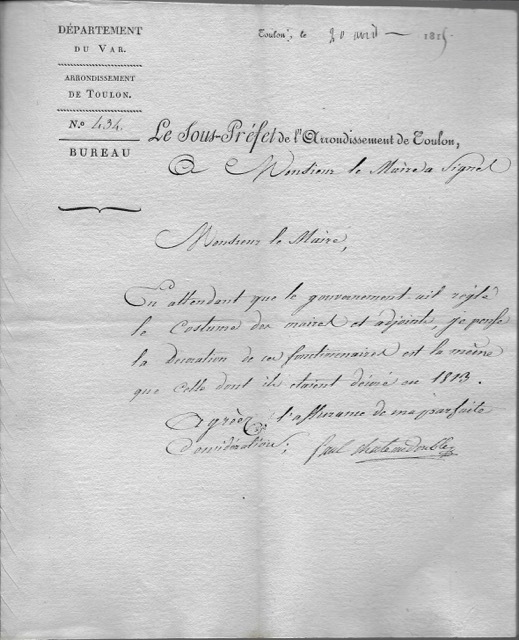 DÉPARTEMENT
DU VAR.
ARRONDISSEMENT
DE TOULON.
N.º 434.
BUREAU
Toulon, le 20 avril 1815.
Le Sous-Préfet de l'Arrondissement de Toulon,
A Monsieur le Maire a Signes
Monsieur le Maire,
En attendant que le gouvernement ait réglé
le Costume des maires et adjoints, je pense
la decoration de ces fonctionnaires est la même
que celle dont ils etaient décoré en 1813.
Agréez l'assurance de ma parfaite
Considération,
Paul chateaudouble